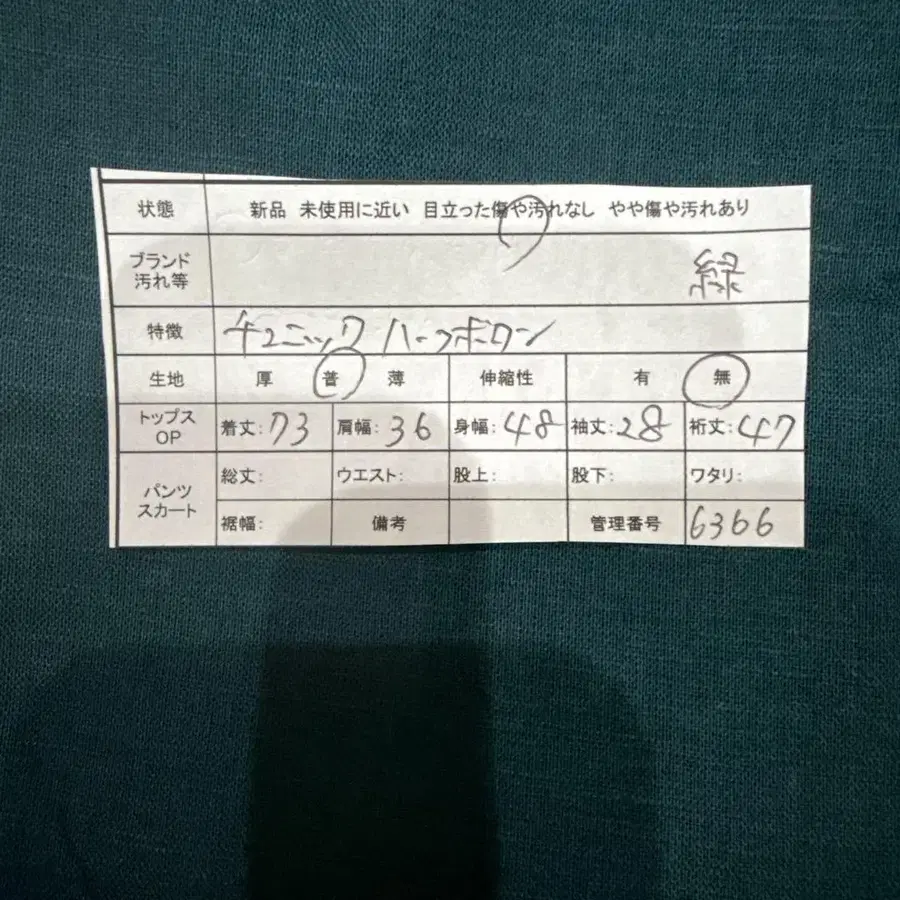 状態 新品 未使用に近い 目立った傷や汚れなし やや傷や汚れあり
ブランド
汚れ等 緑
特徴 チュニック ハーフボタン
生地 厚 普 薄 伸縮性 有 無
トップス
OP 着丈:73 肩幅:36 身幅:48 袖丈:28 裄丈:47
パンツ
スカート 総丈: ウエスト: 股上: 股下: ワタリ:
裾幅: 備考 管理番号 6366